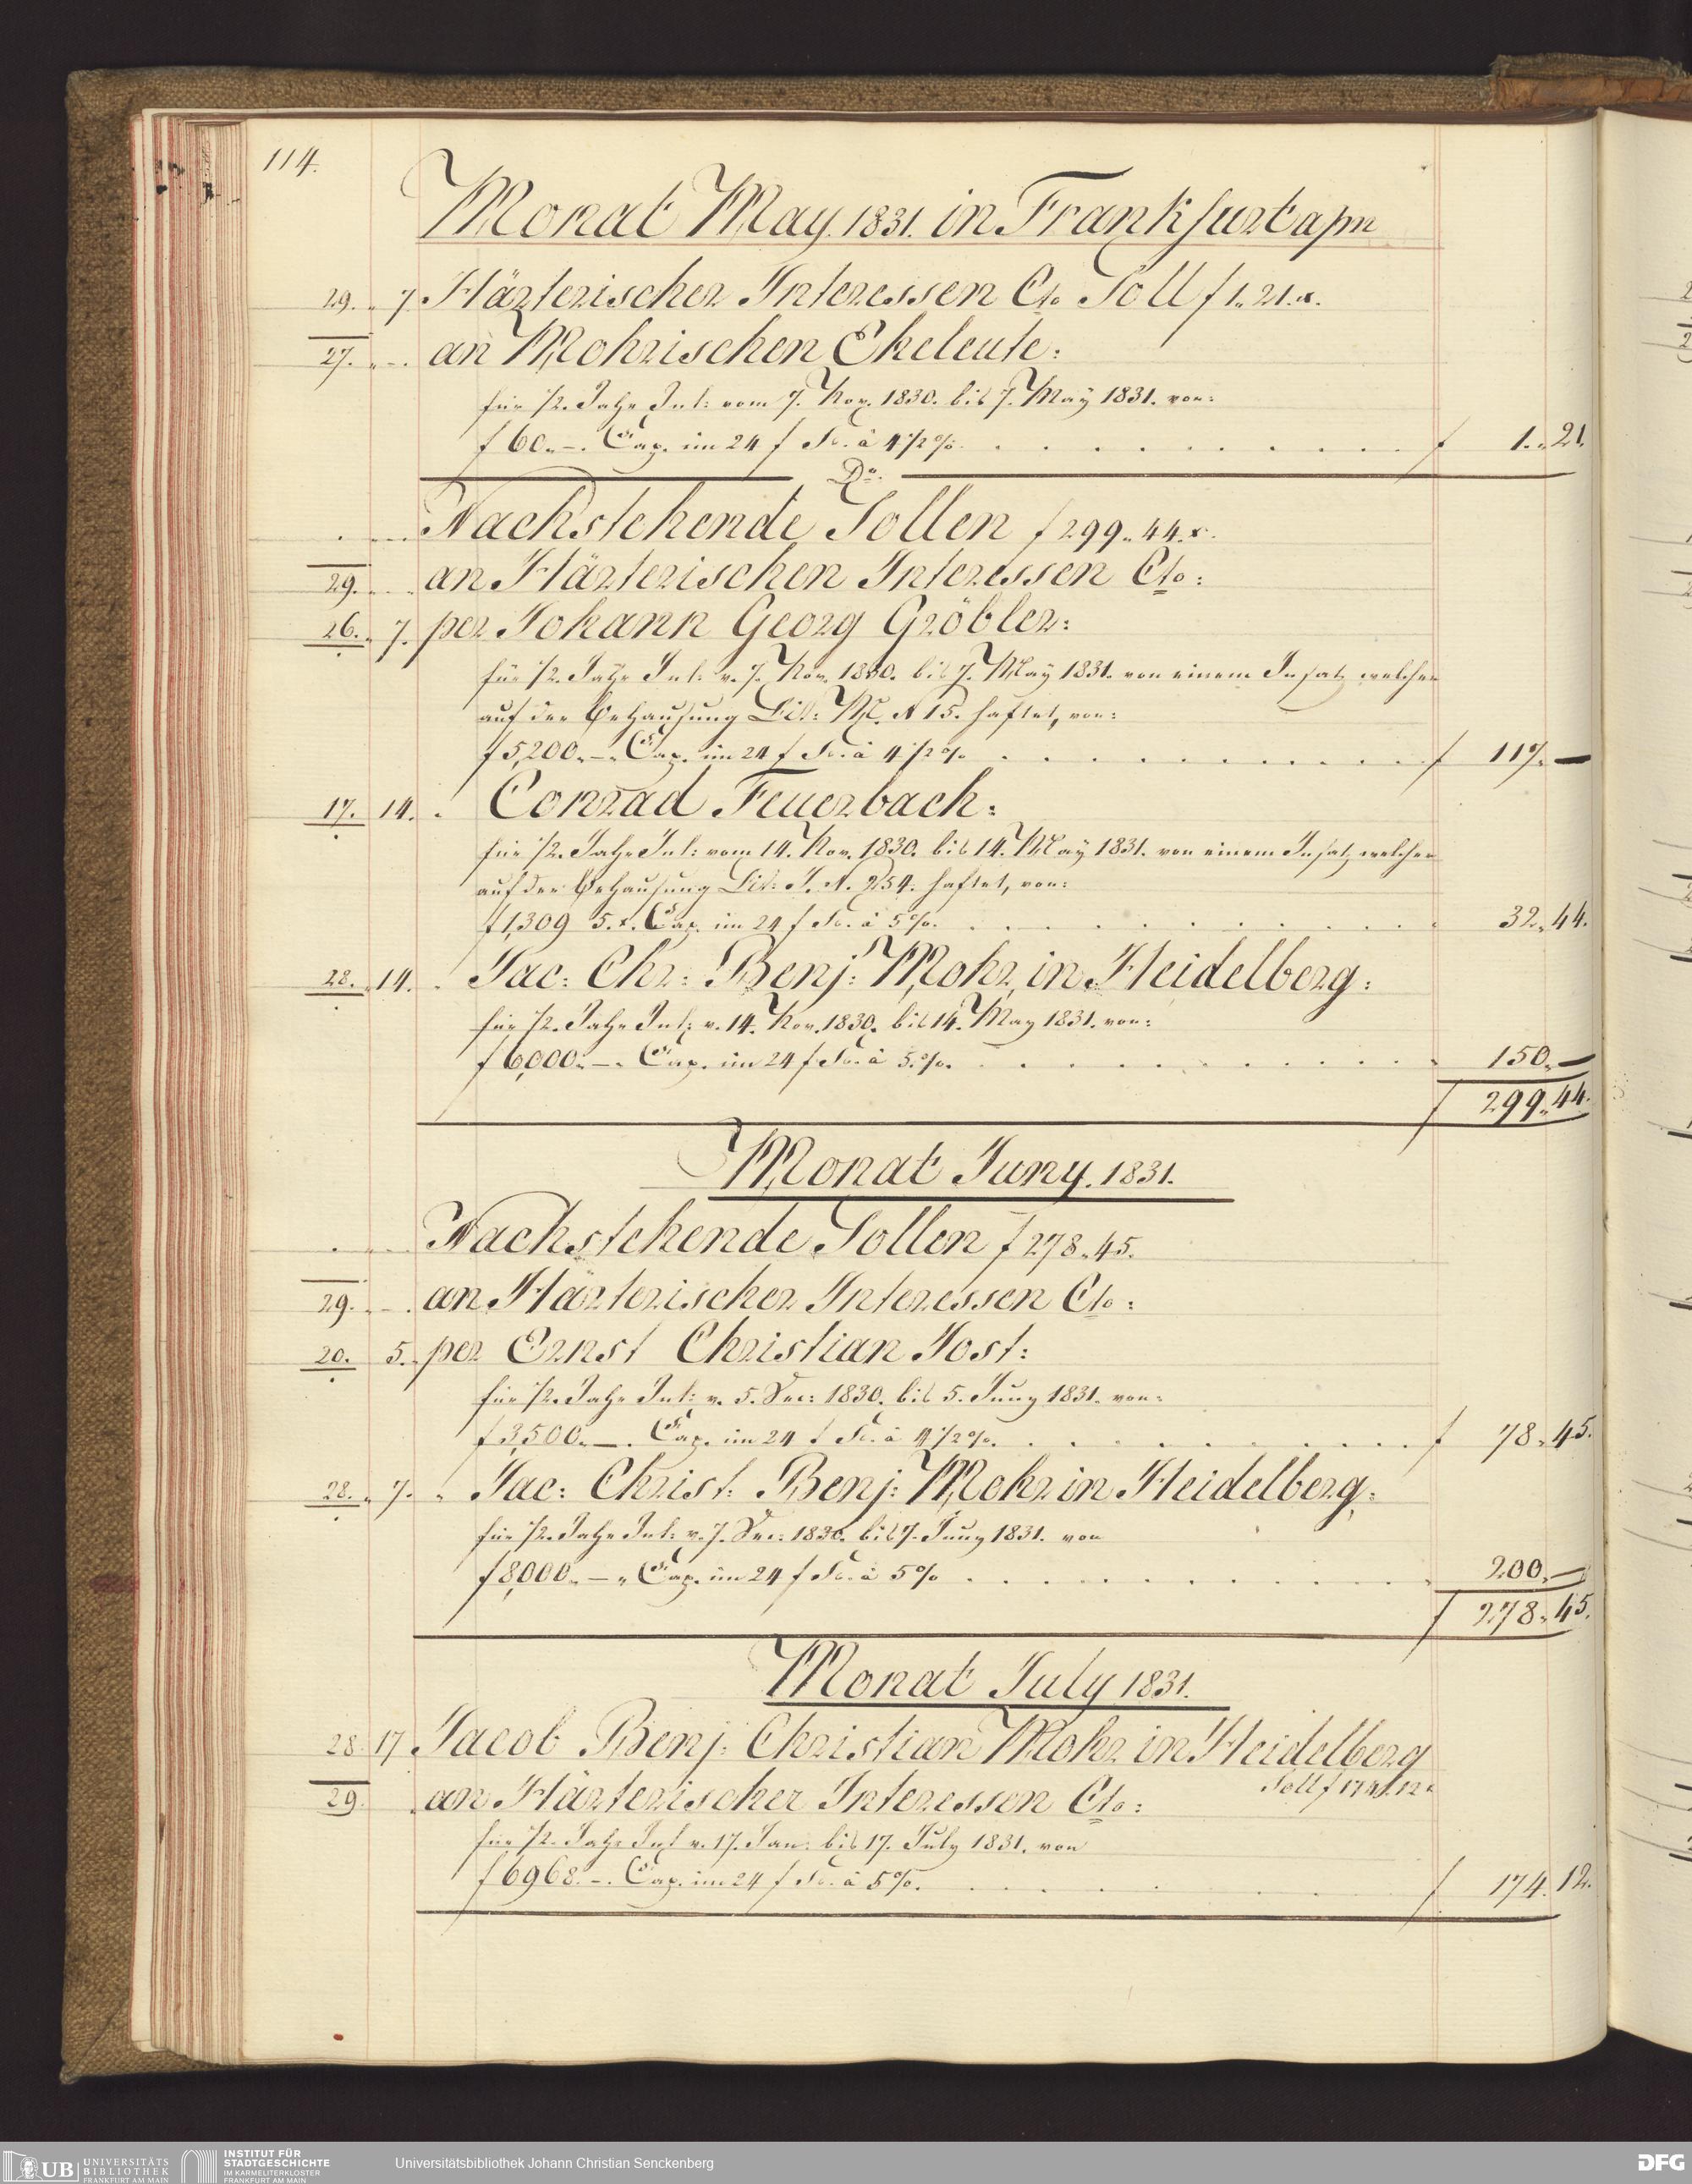 114.
Monat May. 1831. in Frankfurt a/m
29. „ 7 Härterischer Interessen Cto. Soll f 1. 21. x.
27. „ - . an Mohrischen Eheleute:
für 1/2 Jahr Int: vom 7. Nov. 1830. bis 7. May 1831. von:
f 60. –. Cap. im 24 f Fs. à 4 1/2 % . . . f 1. „ 21.
Do.
Nachstehende Sollen f 299. „ 44. x.
29. . . an Härterischen Interessen Cto:
26. „ 7. per Johann Georg Gröbler:
für 1/2 Jahr Int: v. 7. Nov. 1830. bis 7. May 1831. von einem Insatz welcher
auf der Behausung Lit: M. N 15. haftet, von:
f 5,200. –. Cap. im 24 f Fs. à 4 1/2 % . . . f 117. „ —
17. 14. . Conrad Feuerbach:
für 1/2 Jahr Int: vom 14. Nov. 1830. bis 14. May 1831. von einem Insatz welcher
auf der Behausung Lit: J. N. 254. haftet, von:
f 1,309 5. x. Cap. im 24 f Fs. à 5 %. . . . 32. „ 44.
28. „ 14. . Jac: Chr: Benj: Mohr, in Heidelberg:
für 1/2 Jahr Int: v. 14. Nov. 1830. bis 14. May 1831. von:
f 6,000. –. Cap. im 24 f Fs. à 5. %. . . . 150. „ —
f 299. „ 44.
Monat Juny. 1831.
Nachstehende Sollen f 278. „ 45.
29. „ - . an Härterischer Interessen Cto:
20. 5. per Ernst Christian Jost:
für 1/2 Jahr Int: v. 5. Dec: 1830. bis 5. Juny 1831. von:
f 3,500. –. Cap. im 24 f Fs. à 4 1/2 %. . . . f 78. „ 45.
28. „ 7. „ Jac: Christ: Benj: Mohr in Heidelberg:
für 1/2 Jahr Int: v. 7. Dec: 1830. bis 7. Juny 1831. von
f 8,000. – „ Cap. im 24 f Fs. à 5 % . . . 200. „ —
f 278. „ 45.
Monat July 1831.
28. 17 Jacob Benj: Christian Mohr in Heidelberg
Soll f 174. 12 x
29. . an Härterischer Interessen Cto:
für 1/2 Jahr Int v. 17. Jan: bis 17. July 1831. von
f 6968. –. Cap. im 24 f Fs. à 5 %. . . . f 174. 12.
UB UNIVERSITÄTS
BIBLIOTHEK
FRANKFURT AM MAIN
INSTITUT FÜR
STADTGESCHICHTE
IM KARMELITERKLOSTER
FRANKFURT AM MAIN
Universitätsbibliothek Johann Christian Senckenberg
DFG